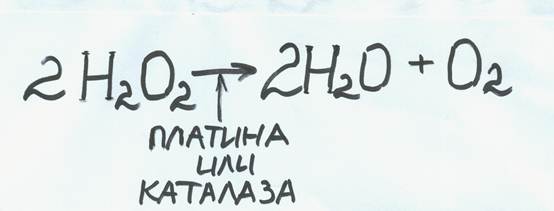 2H₂O₂ → 2H₂O + O₂
ПЛАТИНА
ИЛИ
КАТАЛАЗА